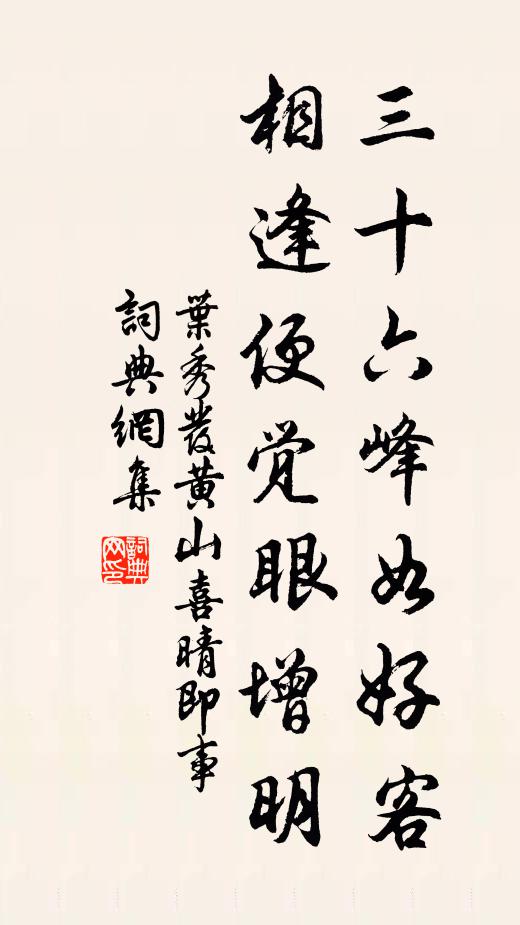 三十六峰如好客
相逢便觉眼增明
葉秀發黄山喜晴即事
詞典網集
詞典網印